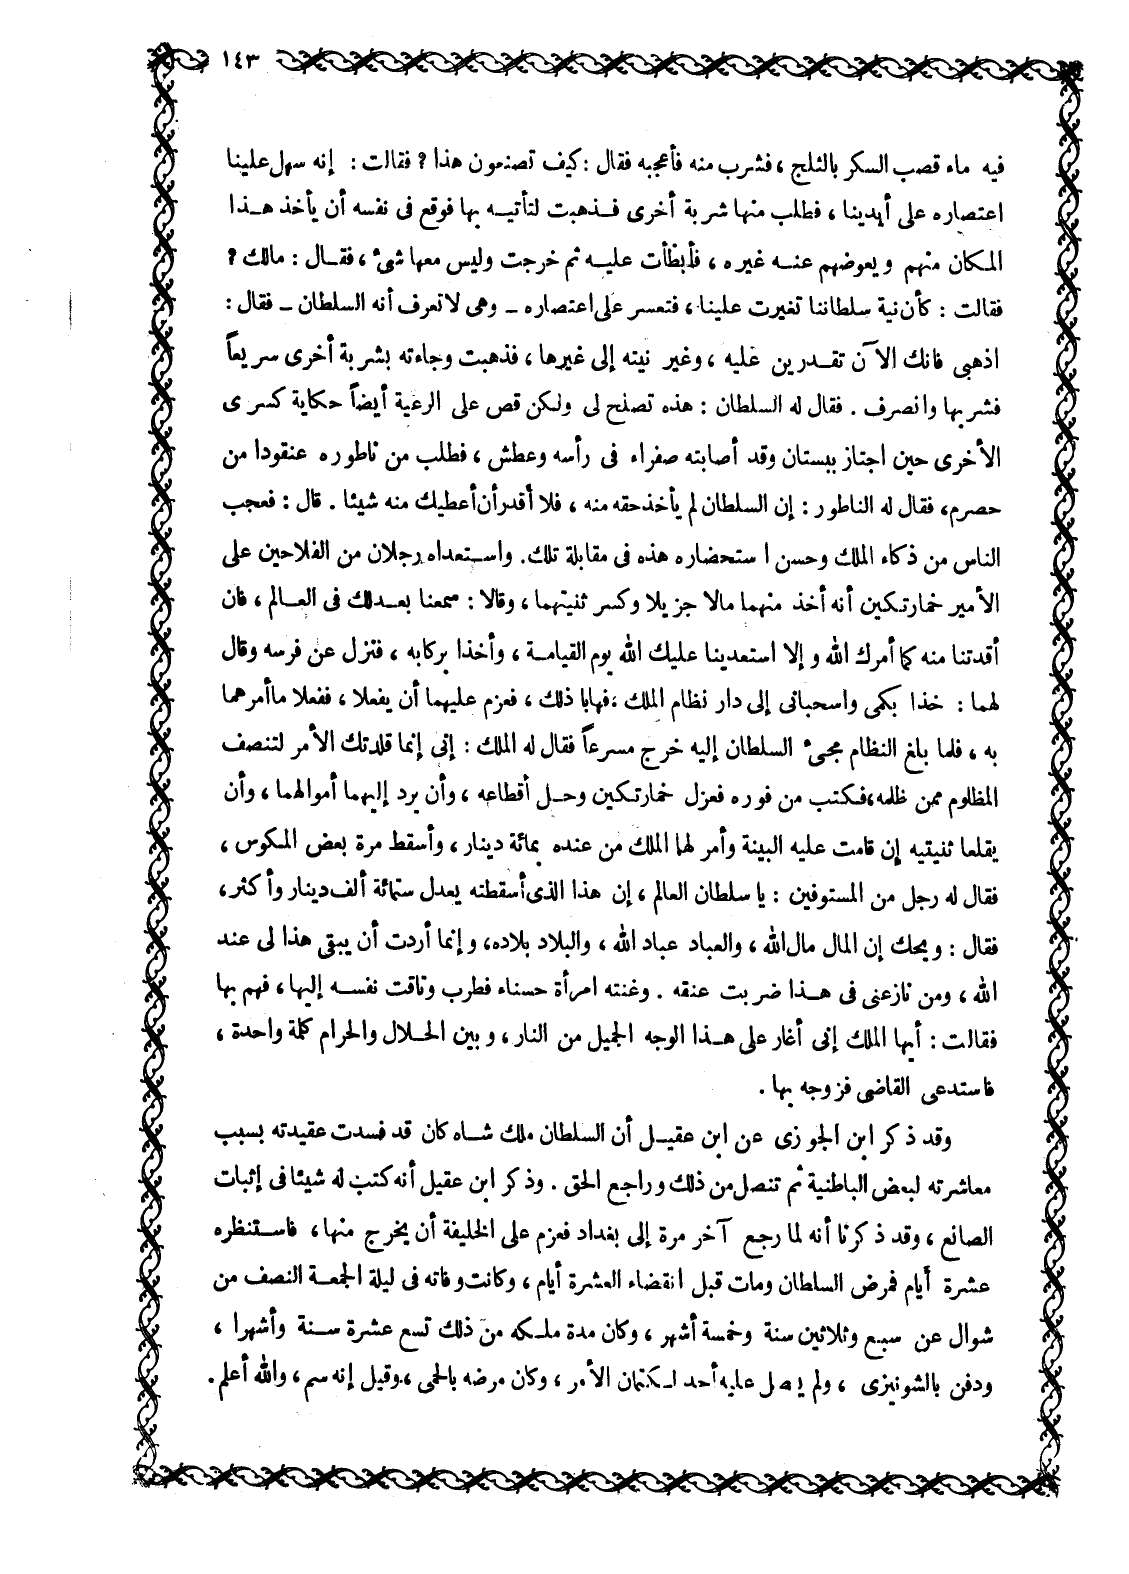 ١٤٣
فيه ماء قصب السكر بالثلج ، فشرب منه فأعجبه فقال : كيف تصنعون هذا ؟ فقالت : إنه سهل علينا
اعتصاره على أيدينا ، فطلب منها شربة أخرى فذهبت لتأتيه بها فوقع فى نفسه أن يأخذ هذا
المكان منهم ويعوضهم عنه غيره ، فأبطأت عليه ثم خرجت وليس معها شىء ، فقال : مالك ؟
فقالت : كأن نية سلطاننا تغيرت علينا ، فتعسر على اعتصاره ــ وهى لا تعرف أنه السلطان ــ فقال :
اذهبى فانك الآن تقدرين عليه ، وغير نيته إلى غيرها ، فذهبت وجاءته بشربة أخرى سريعاً
فشربها وانصرف . فقال له السلطان : هذه تصلح لى ولكن قص على الرعية أيضاً حكاية كسرى
الأخرى حين اجتاز ببستان وقد أصابته صفراء فى رأسه وعطش ، فطلب من ناطوره عنقودا من
حصرم ، فقال له الناطور : إن السلطان لم يأخذ حقه منه ، فلا أقدر أن أعطيك منه شيئا . قال : فعجب
الناس من ذكاء الملك وحسن استحضاره هذه فى مقابلة تلك . واستعداه رجلان من الفلاحين على
الأمير خمارتكين أنه أخذ منهما مالا جزيلا وكسر ثنيتهما ، وقالا : سمعنا بعدلك فى العالم ، فان
أقدتنا منه كما أمرك الله وإلا استعدينا عليك الله يوم القيامة ، وأخذا بركابه ، فنزل عن فرسه وقال
لهما : خذا بكمى واسحبانى إلى دار نظام الملك ، فهابا ذلك ، فعزم عليهما أن يفعلا ، ففعلا ما أمرهما
به ، فلما بلغ النظام مجىء السلطان إليه خرج مسرعاً فقال له الملك : إنى إنما قلدتك الأمر لتنصف
المظلوم ممن ظلمه ، فكتب من فوره فعزل خمارتكين وحل أقطاعه ، وأن يرد إليهما أموالهما ، وأن
يقلعا ثنيتيه إن قامت عليه البينة وأمر لهما الملك من عنده بمائة دينار ، وأسقط مرة بعض المكوس ،
فقال له رجل من المستوفين : يا سلطان العالم ، إن هذا الذى أسقطته يعدل ستمائة ألف دينار وأكثر ،
فقال : ويحك إن المال مال الله ، والعباد عباد الله ، والبلاد بلاده ، وإنما أردت أن يبقى هذا لى عند
الله ، ومن نازعنى فى هذا ضربت عنقه . وغنته امرأة حسناء فطرب وتاقت نفسه إليها ، فهم بها
فقالت : أيها الملك إنى أغار على هذا الوجه الجميل من النار ، وبين الحلال والحرام كلمة واحدة ،
فاستدعى القاضى فزوجه بها .
وقد ذكر ابن الجوزى عن ابن عقيل أن السلطان ملك شاه كان قد فسدت عقيدته بسبب
معاشرته لبعض الباطنية ثم تنصل من ذلك وراجع الحق . وذكر ابن عقيل أنه كتب له شيئا فى إثبات
الصانع ، وقد ذكرنا أنه لما رجع آخر مرة إلى بغداد فعزم على الخليفة أن يخرج منها ، فاستنظره
عشرة أيام فمرض السلطان ومات قبل انقضاء العشرة أيام ، وكانت وفاته فى ليلة الجمعة النصف من
شوال عن سبع وثلاثين سنة وخمسة أشهر ، وكان مدة ملكه من ذلك تسع عشرة سنة وأشهرا ،
ودفن بالشونيزى ، ولم يصل عليه أحد لكتمان الأمر ، وكان مرضه بالحمى ، وقيل إنه سم ، والله أعلم .